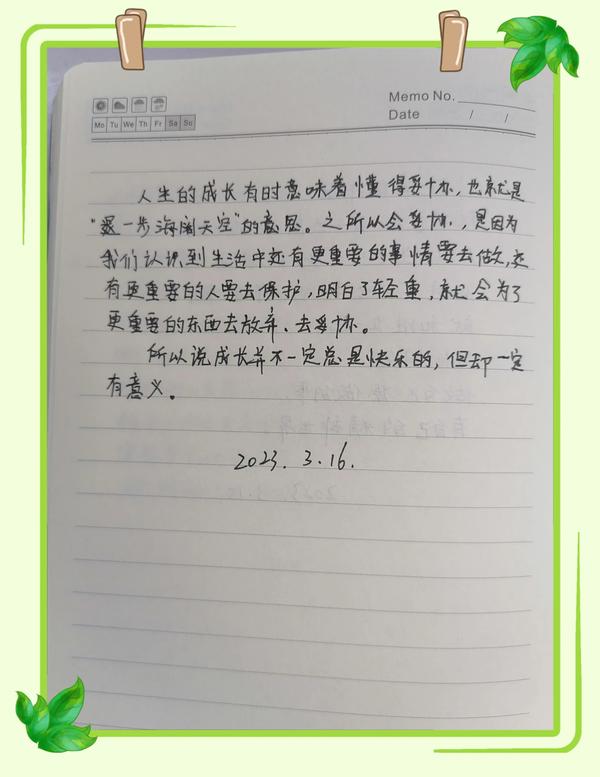 Memo No.
Date / /
Mo Tu We Th Fr Sa Su
人生的成长有时意味着懂得妥协，也就是
“退一步海阔天空”的意思。之所以会妥协，是因为
我们认识到生活中还有更重要的事情要去做，还
有更重要的人要去保护，明白了轻重，就会为了
更重要的东西去放弃、去妥协。
所以说成长并不一定总是快乐的，但却一定
有意义。
2023.3.16.